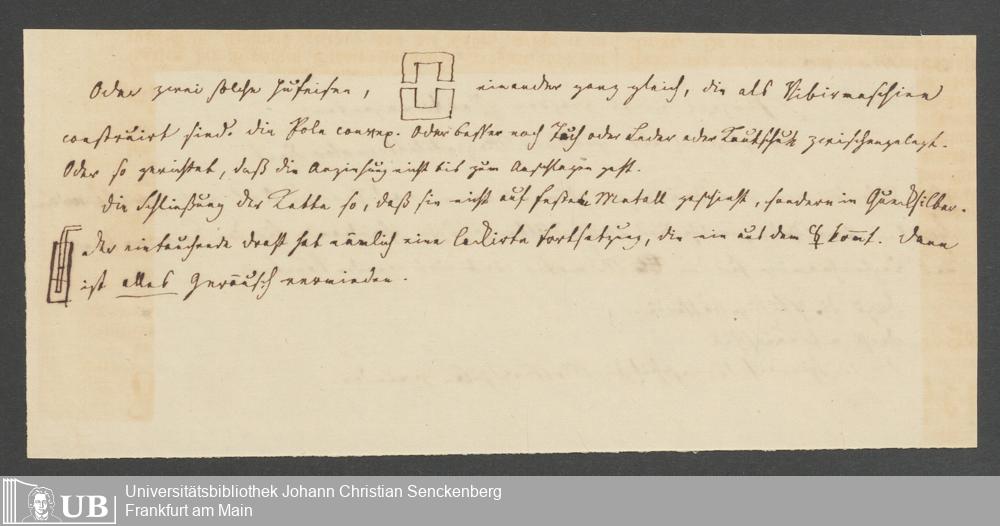 Oder zwei solche Hufeisen, einander ganz gleich, die als Vibrirmaschine
construirt sind. die Pole convex. Oder besser noch Tuch oder Leder oder Kautschuk zwischengelegt.
Oder so gerichtet, daß die Anziehung nicht bis zum Anschlagen geht.
Die Schließung der Kette so, daß sie nicht auf festem Metall geschieht, sondern in Quecksilber.
der eintauchende Draht hat nämlich eine lackirte Fortsetzung, die nie aus dem ☿ kom̄t. Dann
ist alles Geräusch vermieden.
UB
Universitätsbibliothek Johann Christian Senckenberg
Frankfurt am Main